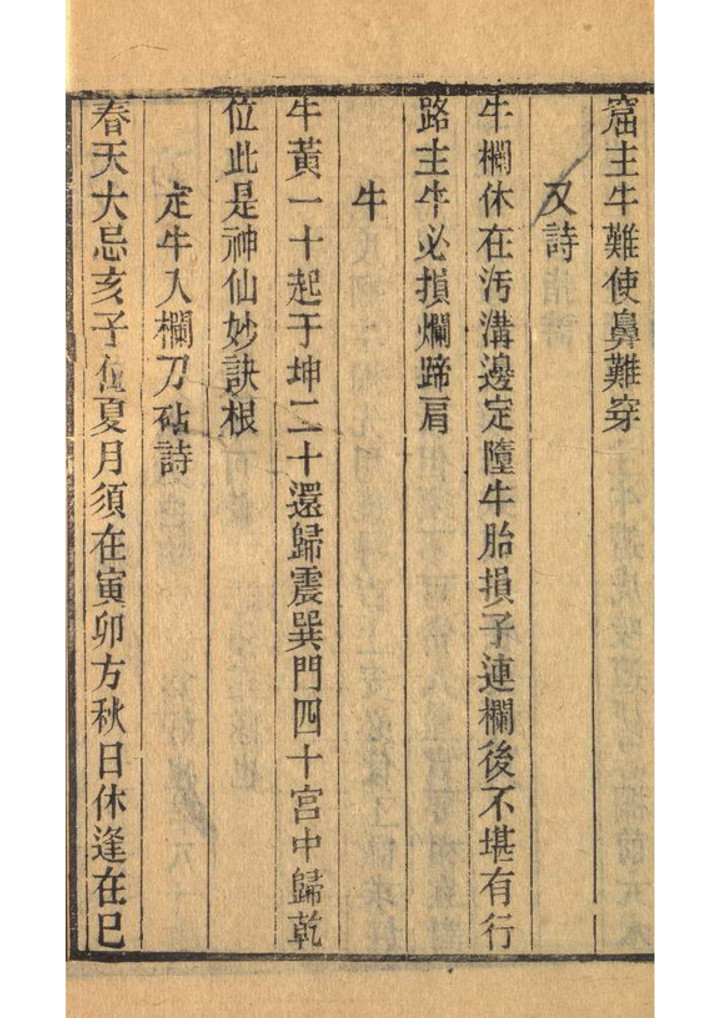 窟主牛難使鼻難穿
又詩
牛欄休在汚溝邊定墮牛胎損子連欄後不堪有行
路主牛必損爛蹄肩
牛
牛黃一十起于坤二十還歸震巽門四十宮中歸乾
位此是神仙妙訣根
定牛入欄刀砧詩
春天大忌亥子位夏月須在寅卯方秋日休逢在巳